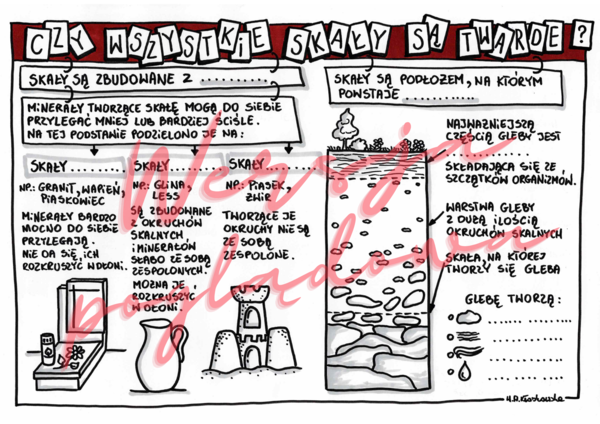 CZY WSZYSTKIE SKAŁY SĄ TWARDE?
SKAŁY SĄ ZBUDOWANE Z ..........
MINERAŁY TWORZĄCE SKAŁĘ MOGĄ DO SIEBIE
PRZYLEGAĆ MNIEJ LUB BARDZIEJ ŚCIŚLE.
NA TEJ PODSTAWIE PODZIELONO JE NA:
SKAŁY.........
NP.: GRANIT, WAPIEŃ,
PIASKOWIEC
MINERAŁY BARDZO
MOCNO DO SIEBIE
PRZYLEGAJĄ.
NIE DA SIĘ ICH
ROZKRUSZYĆ W DŁONI.
SKAŁY.........
NP.: GLINA,
LESS
SĄ ZBUDOWANE
Z OKRUCHÓW
SKALNYCH
I MINERAŁÓW
SŁABO ZE SOBĄ
ZESPOLONYCH.
MOŻNA JE
ROZKRUSZYĆ
W DŁONI.
SKAŁY.........
NP.: PIASEK,
ŻWIR
TWORZĄCE JE
OKRUCHY NIE SĄ
ZE SOBĄ
ZESPOLONE.
SKAŁY SĄ PODŁOŻEM, NA KTÓRYM
POWSTAJE ............
NAJWAŻNIEJSZĄ
CZĘŚCIĄ GLEBY JEST
..............
SKŁADAJĄCA SIĘ ZE
SZCZĄTKÓW ORGANIZMÓW.
WARSTWA GLEBY
Z DUŻĄ ILOŚCIĄ
OKRUCHÓW SKALNYCH
SKAŁA, NA KTÓREJ
TWORZY SIĘ GLEBA
GLEBĘ TWORZĄ:
..............
..............
..............
..............
Wersja
poglądowa